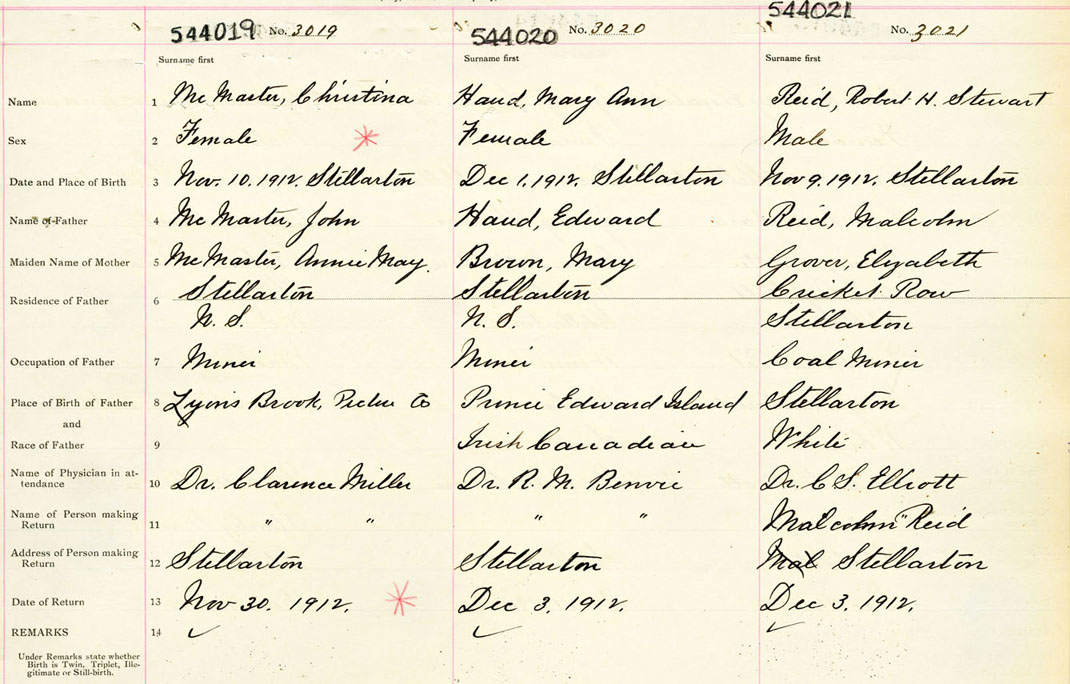 544019 No. 3019 544020 No. 3020 544021 No. 3021
Surname first Surname first Surname first
Name 1 McMaster, Christina Hand, Mary Ann Reid, Robert H. Stewart
Sex 2 Female Female Male
Date and Place of Birth 3 Nov. 10. 1912. Stellarton Dec 1. 1912. Stellarton Nov 9. 1912. Stellarton
Name of Father 4 McMaster, John Hand, Edward Reid, Malcolm
Maiden Name of Mother 5 McMaster, Annie May. Brown, Mary Grover, Elizabeth
Residence of Father 6 Stellarton Stellarton Cricket Row
N. S. N. S. Stellarton
Occupation of Father 7 Miner Miner Coal Miner
Place of Birth of Father 8 Lyons Brook, Pictou Co Prince Edward Island Stellarton
and
Race of Father 9 Irish Canadian White
Name of Physician in at-
tendance 10 Dr. Clarence Miller Dr. R. M. Benvie Dr. C S. Elliott
Name of Person making
Return 11 " " " " Malcolm Reid
Address of Person making
Return 12 Stellarton Stellarton Mal Stellarton
Date of Return 13 Nov 30. 1912. Dec 3. 1912. Dec 3. 1912.
REMARKS 14
Under Remarks state whether
Birth is Twin, Triplet, Ille-
gitimate or Still-birth.